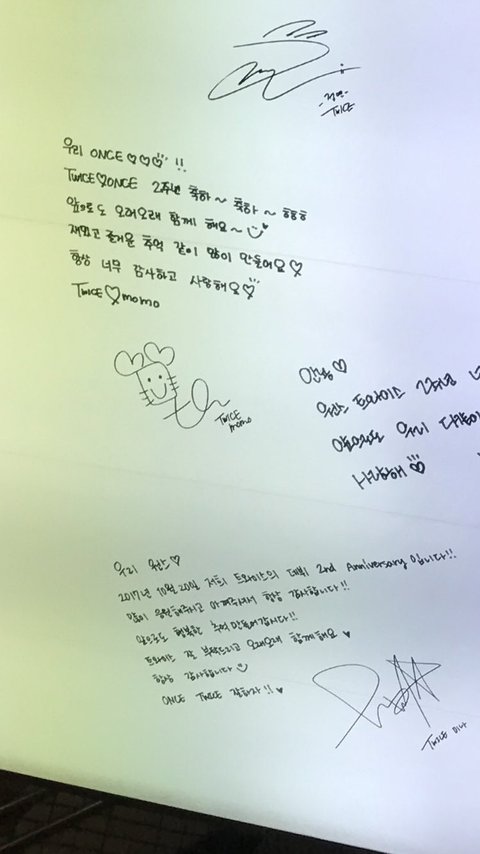 -정연-
TWICE
우리 ONCE♡♡♡!!
TWICE♡ONCE 2주년 축하~ 축하~ ㅎㅎㅎ
앞으로도 오래오래 함께 해요~
재밌고 즐거운 추억 같이 많이 만들어요♡
항상 너무 감사하고 사랑해요♡
TWICE♡momo
TWICE
momo
안녕♡
원스 트와이스 2주년
우리
사랑해♡
우리 원스♡
2017년 10월 20일 저희 트와이스의 데뷔 2nd Anniversary 입니다!!
많이 응원해주시고 아껴주셔서 항상 감사합니다!!
앞으로도 행복한 추억 만들어갑시다!!
트와이스 잘 부탁드리고 오래오래 함께해요 ♥
항상 감사합니다
ONCE TWICE 잘하자!! ♥
TWICE 미나